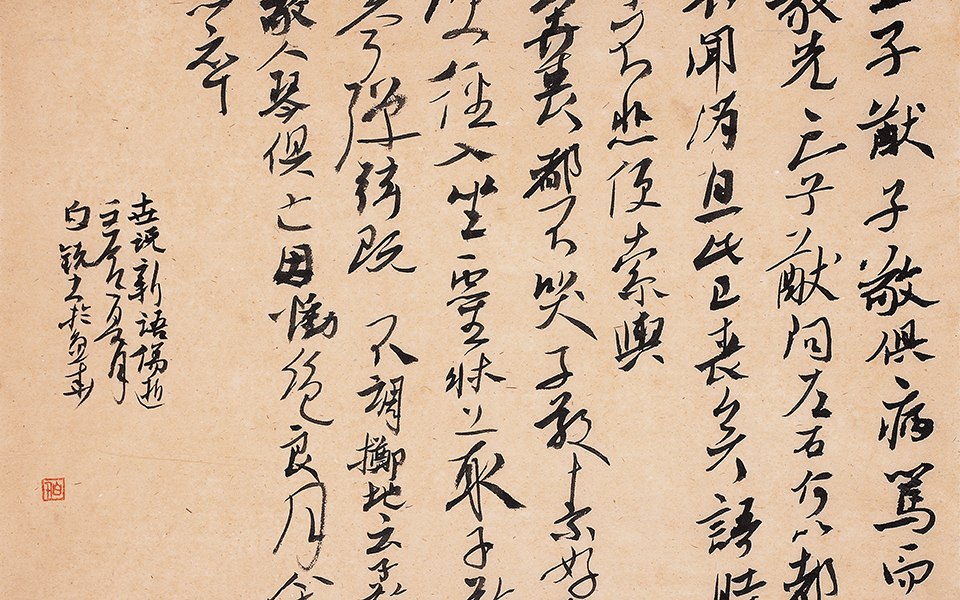 子猷子敬俱病篤而
敬先亡子猷問左右何以都
不聞消息此已喪矣語時
了不悲便索輿
奔喪都不哭子敬素好
便徑入坐靈牀上取子敬
琴彈弦既不調擲地云子敬
敬人琴俱亡因慟絕良月余
亦卒
世說新語傷逝
月
白銳書於